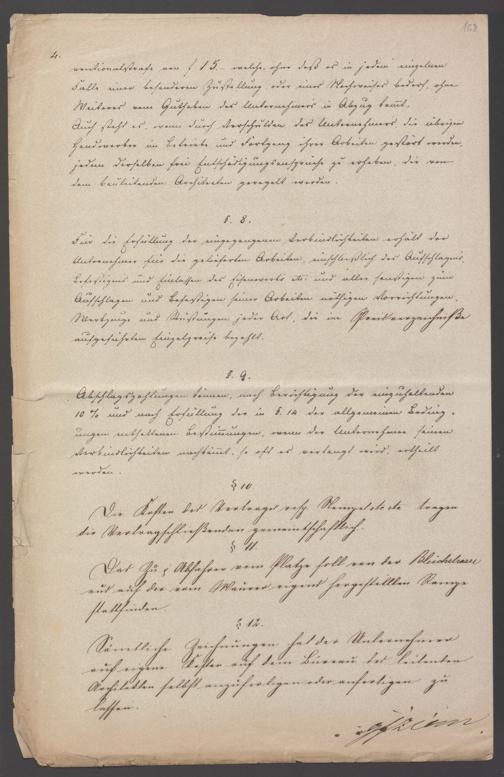 168
4.
ventionalstrafe von f 15,- welche, ohne daß es in jedem einzelnen
Falle einer besonderen Zustellung oder eines Nachweises bedarf, ohne
Weiteres vom Guthaben des Unternehmers in Abzug kommt.
Auch steht es, wenn durch Verschulden des Unternehmers die übrigen
Handwerker im Betriebe und Fortgang ihrer Arbeiten gestört werden,
jedem derselben frei Entschädigungsansprüche zu erheben, die von
dem bauleitenden Architekten geregelt werden.
§. 8.
Für die Erfüllung der eingegangenen Verbindlichkeiten erhält der
Unternehmer für die gelieferten Arbeiten, einschließlich des Aufschlagens,
Befestigens und Einlassen des Eisenwerks etc. und aller sonstigen zum
Aufschlagen und Befestigen seiner Arbeiten nöthigen Vorrichtungen,
Werkzeuge und Rüstungen jeder Art, die im Preisverzeichniße
aufgeführten Einzelpreise bezahlt.
§. 9.
Abschlagszahlungen können, nach Berichtigung der einzuhaltenden
10 % und nach Erfüllung der in §. 14 der allgemeinen Beding-
ungen enthaltenen Bestimmungen, wenn der Unternehmer seinen
Verbindlichkeiten nachkommt, so oft es verlangt wird, ertheilt
werden.
§ 10.
Die Kosten des Vertrags resp. Stempel etc etc tragen
die Vertragschließenden gemeinschaftlich.
§ 11.
Das Zu & Abfahren vom Platze soll von der
aus auf der vom Maurer eigens hergestellten Rampe
stattfinden.
§ 12.
Sämtliche Zeichnungen hat der Unternehmer
auf eigene Kosten auf dem Bureau des leitenden
Architekten selbst anzufertigen oder anfertigen zu
lassen.